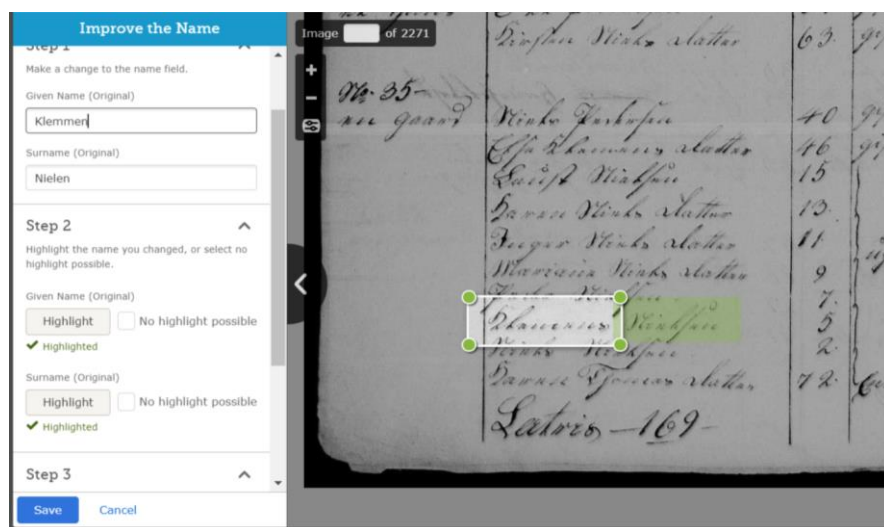 Improve the Name
Step 1
Make a change to the name field.
Given Name (Original)
Klemmen
Surname (Original)
Nielen
Step 2
Highlight the name you changed, or select no
highlight possible.
Given Name (Original)
Highlight No highlight possible
Highlighted
Surname (Original)
Highlight No highlight possible
Highlighted
Step 3
Save Cancel
Image of 2271
Kirsten Niels datter 63.
No. 35-
en gaard Niels Pedersen 40
Else Klemens datter 46
Laust Nielsen 15
Karen Niels datter 13.
Inger Niels datter 11
Mariane Niels datter 9
Peder Nielsen 7.
Klemens Nielsen 5
Niels Nielsen 2.
Maren Thomas datter 72.
Latris - 169 -